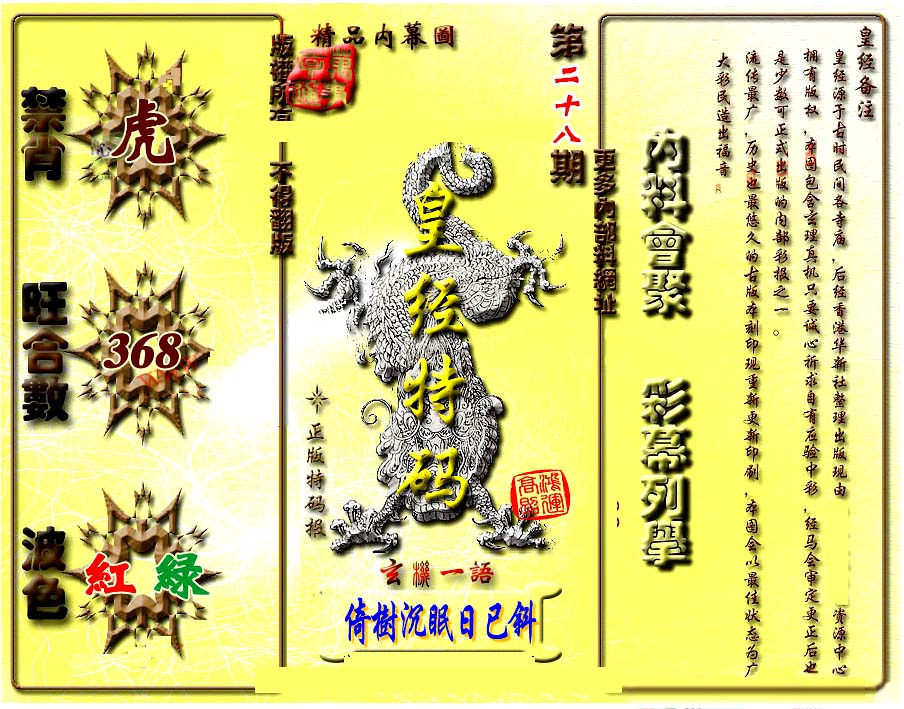 精品内幕圖
第二十八期
版權所有
不得翻版
更多内部料網址
禁肖
虎
旺合數
368
波色
紅 綠
皇经特码
正版特码报
鴻運高照
玄機一語
倚樹沉眠日已斜
内料會聚
彩幕列舉
皇经备注
皇经源于古时民间各寺庙，后经香港华新社整理出版现由 资源中心
拥有版权，本图包含玄理真机只要诚心祈求自有应验中彩，经马会审定更正后也
是少数可正式出版的内部彩报之一。
流传最广，历史也最悠久的古版本刻印现重新更新印刷，本图会以最佳状态为广
大彩民造出福音